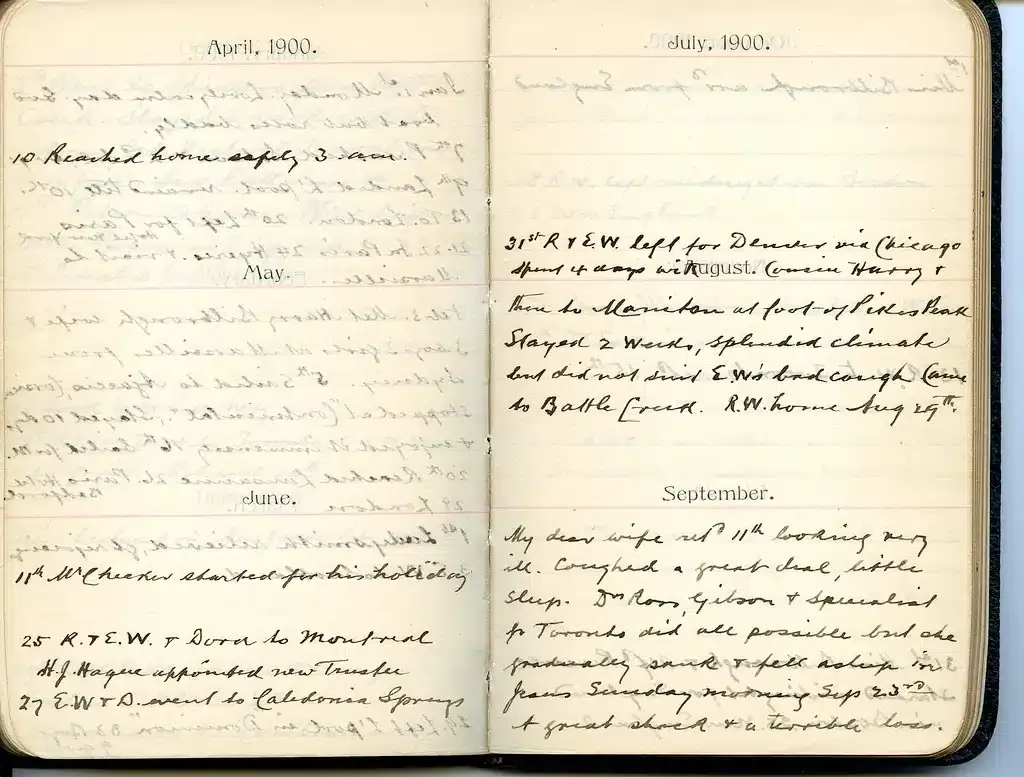 April, 1900.
10 Reached home safely 3 a.m.
May.
June.
11th Mr Checker started for his holiday
25 R. & E.W. & Dora to Montreal
H.J. Hague appointed new Trustee
27 E.W & D. went to Caledonia Springs
July, 1900.
31st R & E.W. left for Denver via Chicago
spent 4 days with Cousin Harry &
August.
then to Manitou at foot of Pikes Peak
Stayed 2 weeks, splendid climate
but did not suit E.W's bad cough Came
to Battle Creek. R.W. home Aug 29th.
September.
My dear wife retd 11th looking very
ill. Coughed a great deal, little
sleep. Drs Ross, Gibson & Specialist
fr Toronto did all possible but she
gradually sank & fell asleep in
Jesus Sunday morning Sep 23rd
A great shock & a terrible loss.